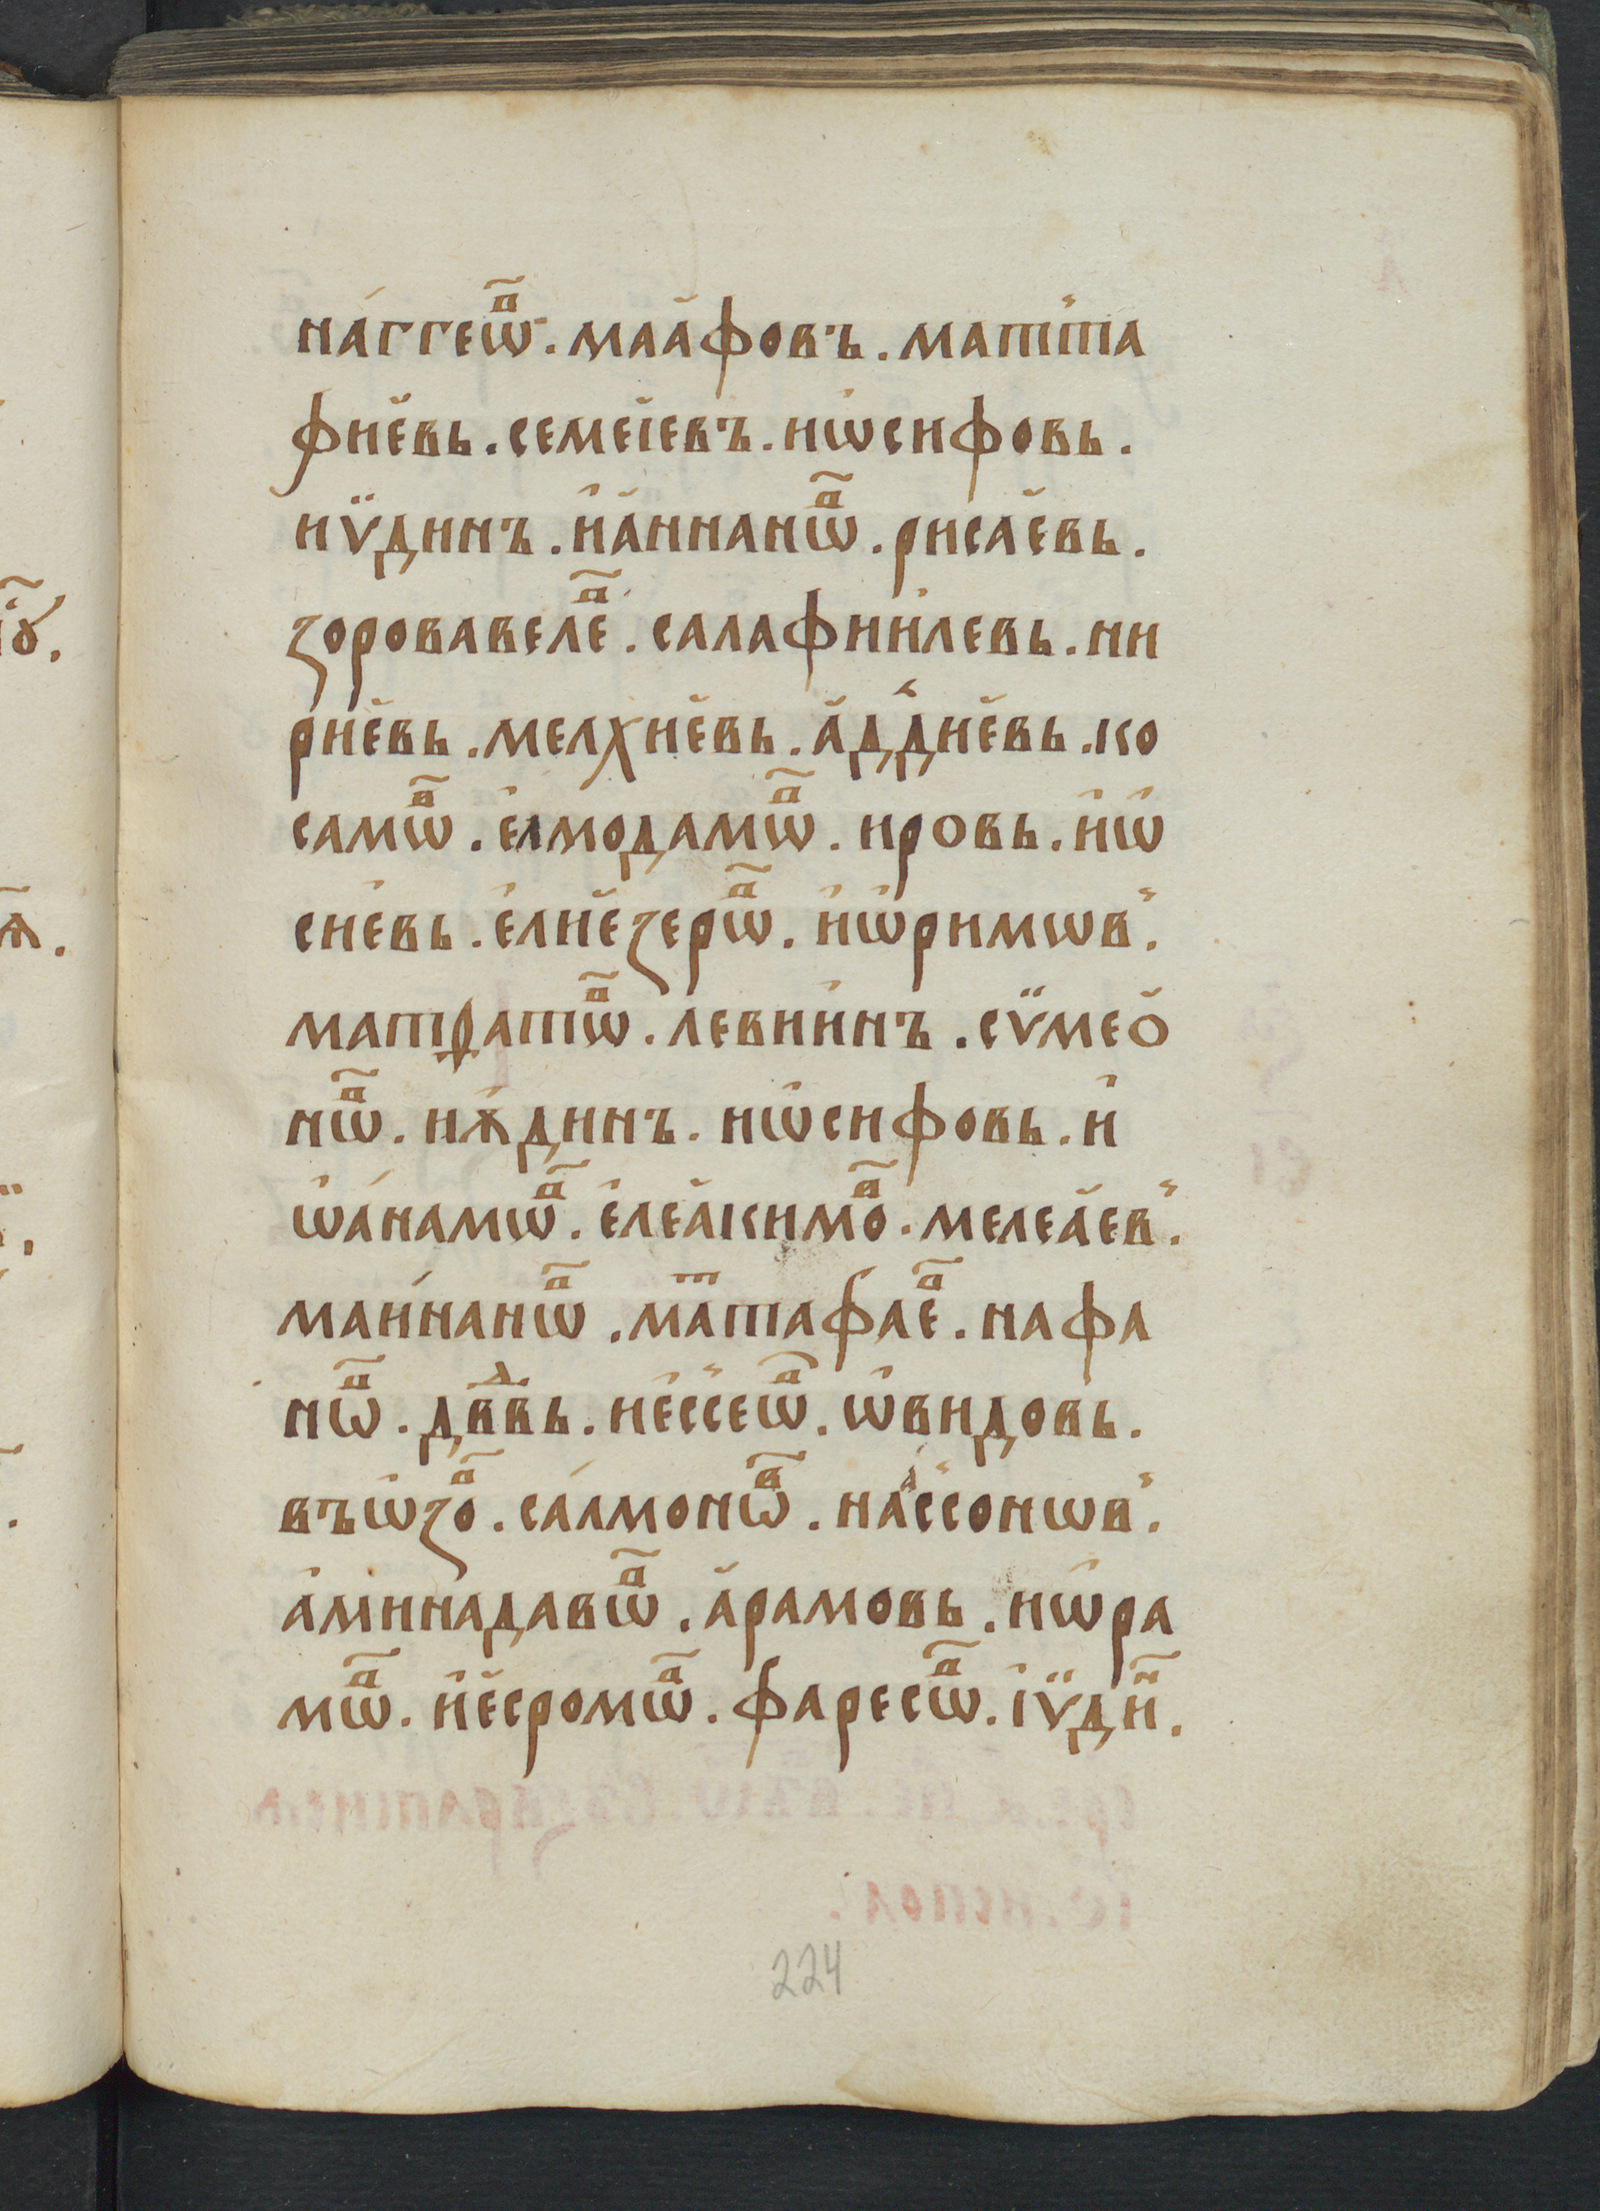 на́ггеѡⷡ҇. маӑфовъ. матⷮта
фиĕвь. семеі̆евъ. иѡ҆сифовь.
иѵ̈динъ. и҆ӑннанѡⷡ҇. рисаĕвь.
ꙁоровавелеⷡ҇. салафии́левь. ни
риĕвь. мелхиĕвь. ӑдⷣдиĕвь. ко
самѡⷡ҇. е҆лмодамѡⷡ҇. ировь. и҆ѡ҆
сиевь. е҆лиĕꙁерѡⷡ҇. и҆ѡ҆римѡв꙽.
матфатѡⷡ҇. левии́нъ. сѵ̈меŏ
нѡⷡ҇. иѫ҆динъ. иѡ҆сифовь. и҆
ѡ҆а́намѡⷡ҇. е҆леӑкимоⷡ҇. мелеӑев꙽.
маи́нанѡⷡ҇. маⷮтафаеⷡ҇. нафа
нѡⷡ҇. двⷣвь. иĕссеѡⷡ҇. ѡ҆видовь.
въѡ҆ꙁоⷡ҇. са́лмонѡⷡ҇. наⷭссонѡв꙽.
а҆минадавѡⷡ҇. ӑрамовь. иѡ҆ра
мѡⷡ҇. и҆ĕсромѡⷡ҇. фаресѡⷡ҇. і҆ѵ̈диⷩ҇.
224